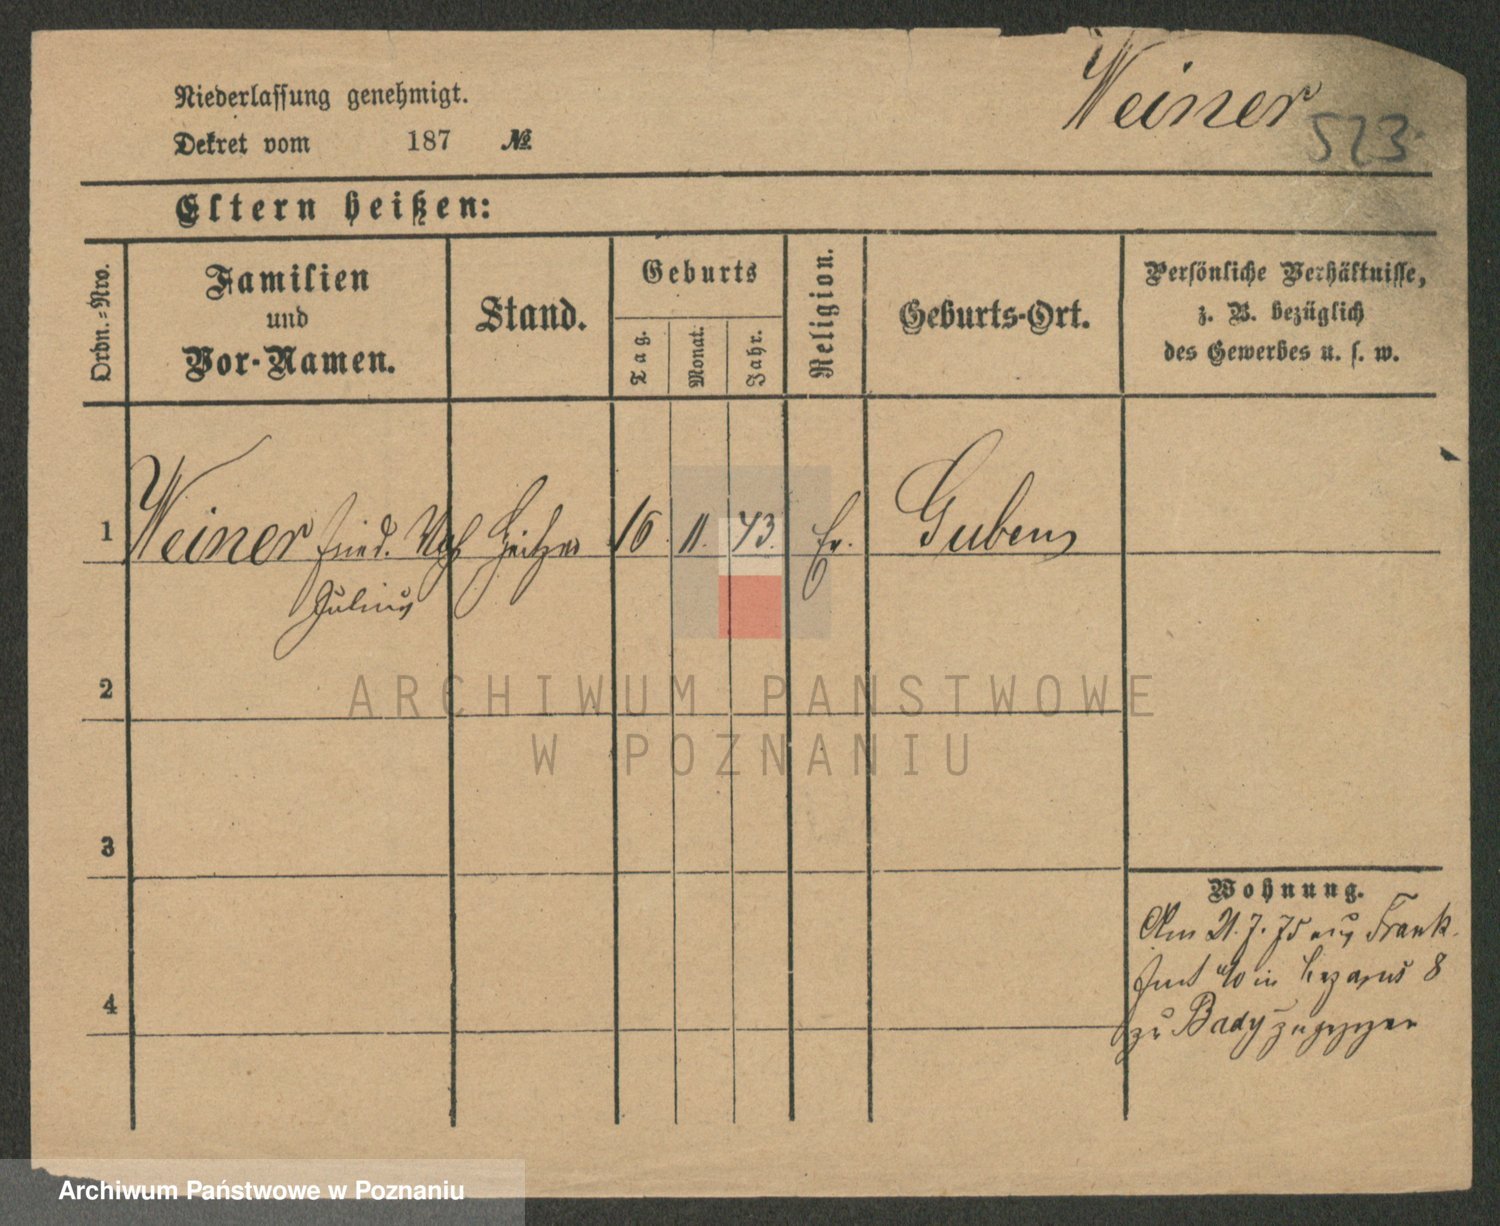 Weiner
523.
Niederlassung genehmigt.
Dekret vom 187 №
Eltern heißen:
Ordn.-Nro.
Familien
und
Vor-Namen.
Stand.
Geburts
Tag.
Monat.
Jahr.
Religion.
Geburts-Ort.
Persönliche Verhältnisse,
z. B. bezüglich
des Gewerbes u. s. w.
1 Weiner Fried. Heizer 16. 11. 43. Ev. Guben
Julius
ARCHIWUM PANSTWOWE
W POZNANIU
2
3
4
Wohnung.
Am 21. 7. 75 aus Frank-
furt a/O in 8
zu zugezogen
Archiwum Państwowe w Poznaniu